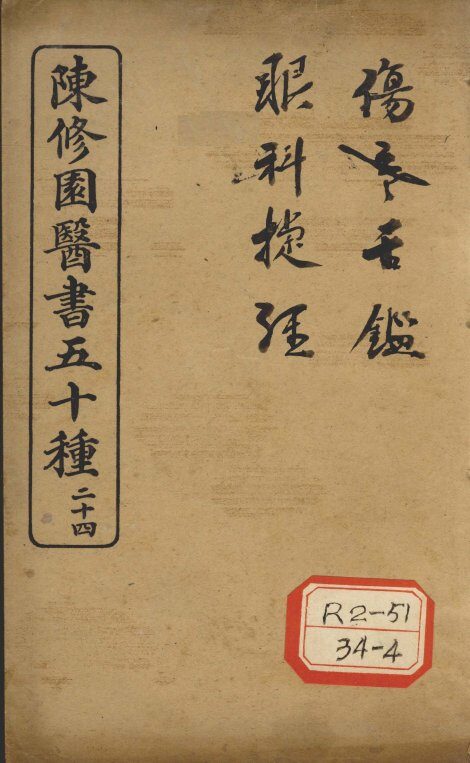 傷寒舌鑑
眼科捷徑
陳修園醫書五十種 二十四
R2-51
34-4